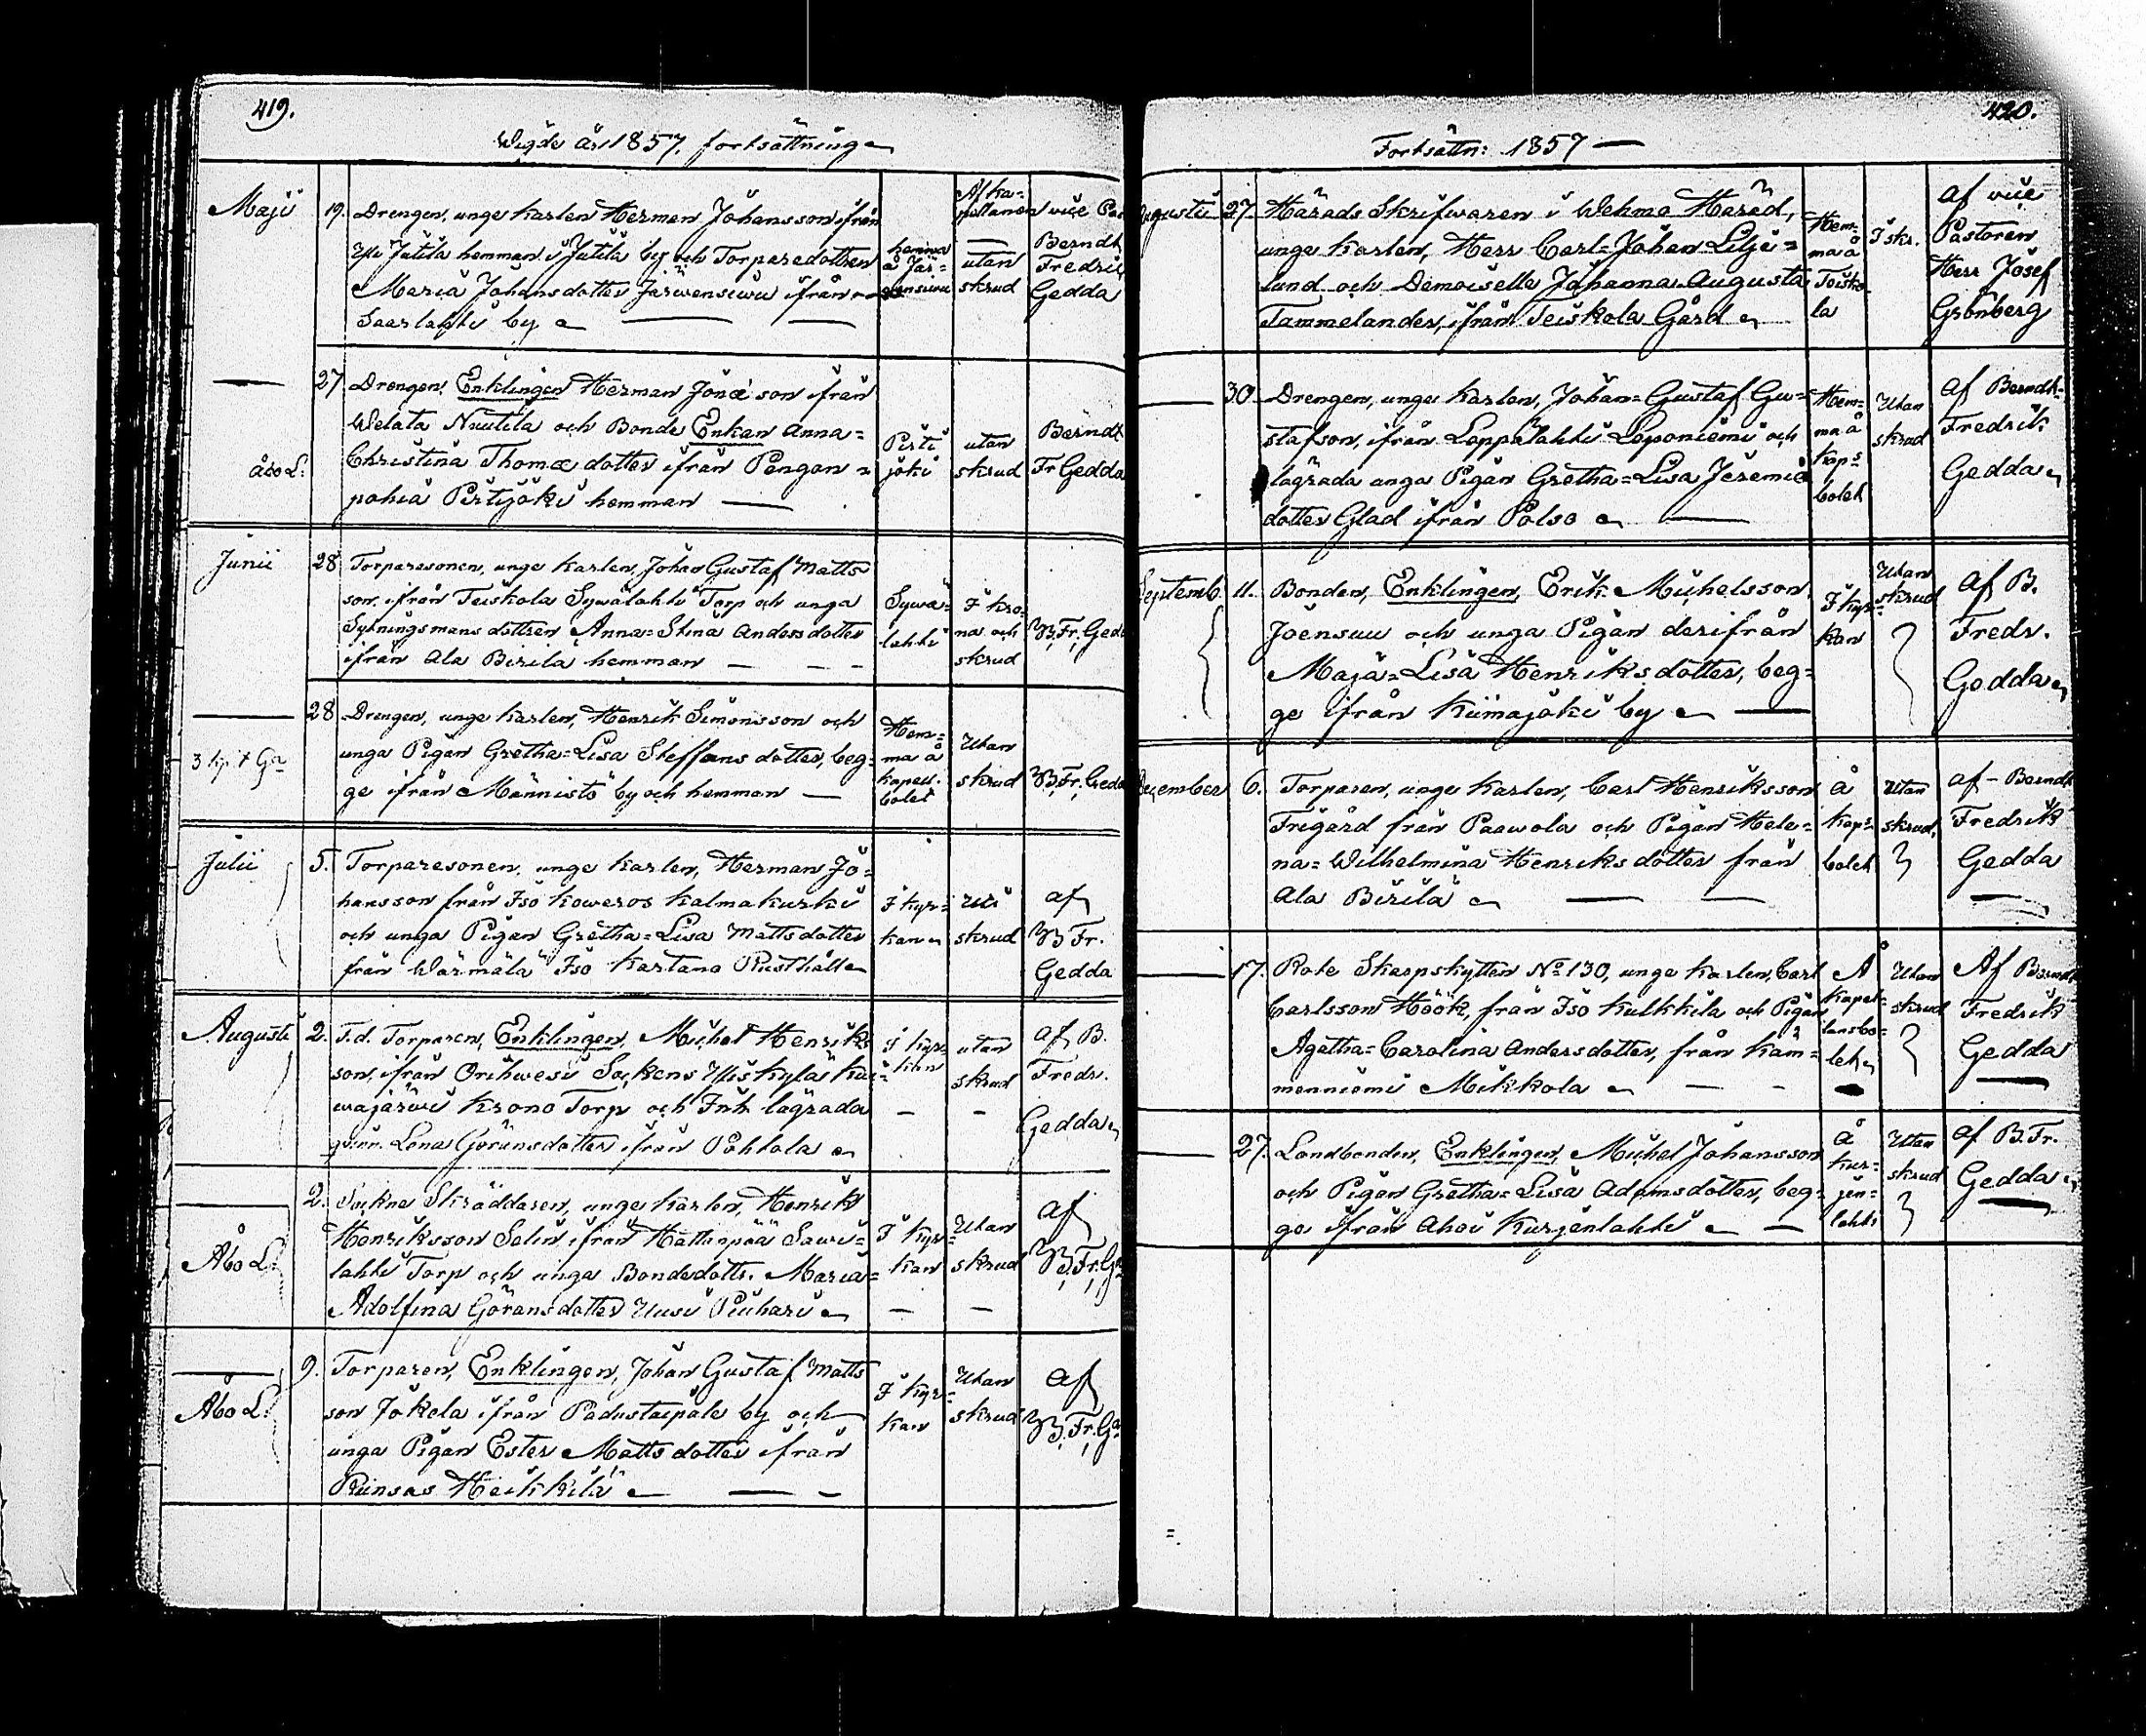 419.
Wigde år 1857. fortsättning
Maji 19. Drengen, unge Karlen Herman Johansson ifrån
Yli Jutila hemman i Jutila by och Torparedottren
Maria Johansdotter Järwensiwu ifrån
Saarlahti by
hemma å Järwensiwu
Af Kapellanen
utan skrud
vice Pas
Berndt Fredric Gedda
27. Drengen, Enklingen Herman Jonæ son ifrån
Welata Nuutila och Bonde Enkan Anna=
Christina Thomæ dotter ifrån Pengon=
pohia Pirtijoki hemman
Åbo L:
Pirti
joki
utan
skrud
Berndt
Fr Gedda
Junii 28 Torparesonen, unge Karlen, Johan Gustaf Matts
son, ifrån Teiskola Sywälahti Torp och unga
Sytningsmans dottren Anna=Stina Andersdotter
ifrån Ala Birila hemman
Sywä=
lahti
I kro
na och
skrud
B, Fr, Ged
28 Drengen, unge Karlen, Henrik Simonsson och
unga Pigan Gretha=Lisa Steffans dotter, beg=
ge ifrån Männistö by och hemman
Hem=
ma å
Kapell.
bolet
Utan
skrud
B, Fr, Gedd
Julii 5. Torparesonen, unge Karlen, Herman Jo=
hansson från Iso Koweros Kalmakurki
och unga Pigan Gretha=Lisa Mattsdotter
från Wärmälä Iso Kartano Rusthåll
I Kyr=
kan
Uti
skrud
af
B Fr.
Gedda
Augusti 2. F.d. Torparen, Enklingen, Michel Henriks
son, ifrån Orihwesi Sockens
wajärwi Krono Torp och Inh. lägrada
qvinn. Lena Göransdotter ifrån Pohtola
i Kyr=
kan
utan
skrud
af B.
Fredr.
Gedda
2. Sockne Skräddaren, unge Karlen, Henrik
Henriksson Salin, ifrån Hattanpää Sawi=
lahti Torp och unga Bondedottr. Maria=
Adolfina Göransdotter Uusi Piihari
Åbo L.
I Kyr=
kan
Utan
skrud
af
B. Fr. Ga
9. Torparen, Enklingen, Johan Gustaf Matts
son Jokela ifrån Padustaipale by och
unga Pigan Ester Mattsdotter ifrån
Ruinsas Heikkilä
Åbo L.
I Kyr=
kan
Utan
skrud
af
B. Fr. Ga
420.
Fortsättn: 1857
ugusti 27. Härads Skrifwaren i Wehmo Härad,
unge Karlen, Herr Carl=Johan Lilje=
lund och Demoiselle Johanna Augusta
Tammelander, ifrån Teiskola Gård
Hem=
ma å
Teisko
la
I skr.
af vice
Pastoren
Herr Josef
Grönberg
30. Drengen, unge Karlen, Johan=Gustaf Gu=
stafson, ifrån Loppilahti Laponiemi och
lägrada unga Pigan Gretha=Lisa Jeremiæ
dotter Glad ifrån Polso
Hem=
ma å
Kaps
bolet
Utan
skrud
af Berndt
Fredrik
Gedda
Septemb. 11. Bonden, Enklingen, Erik Michelsson
Joensuu och unga Pigan derifrån
Maja=Lisa Henriks dotter, beg=
ge ifrån Kiimajoki by
I Kyr=
kan
Utan
skrud
af B.
Fredr.
Gedda
December 6. Torparen, unge Karlen, Carl Henriksson
Frigård från Paawola och Pigan Hele=
na=Wilhelmina Henriks dotter från
Ala Birila
å
Kaps
bolet
utan
skrud
af Berndt
Fredrik
Gedda
17. Rote Skarpskytten No 130, unge Karlen, Carl
Carlsson Höök, från Iso Kulkkila och Pigan
Agatha=Carolina Andersdotter, från Käm=
menniemi Mikkola
Å
Kapel=
lansbo=
let
Utan
skrud
Af Berndt
Fredrik
Gedda
27. Landbonden, Enklingen, Michel Johansson
och Pigan Gretha=Lisa Adamsdotter, beg=
ge ifrån Ahoi Kurjenlahti
å
Kur=
jen=
lahti
Utan
skrud
af B. Fr.
Gedda